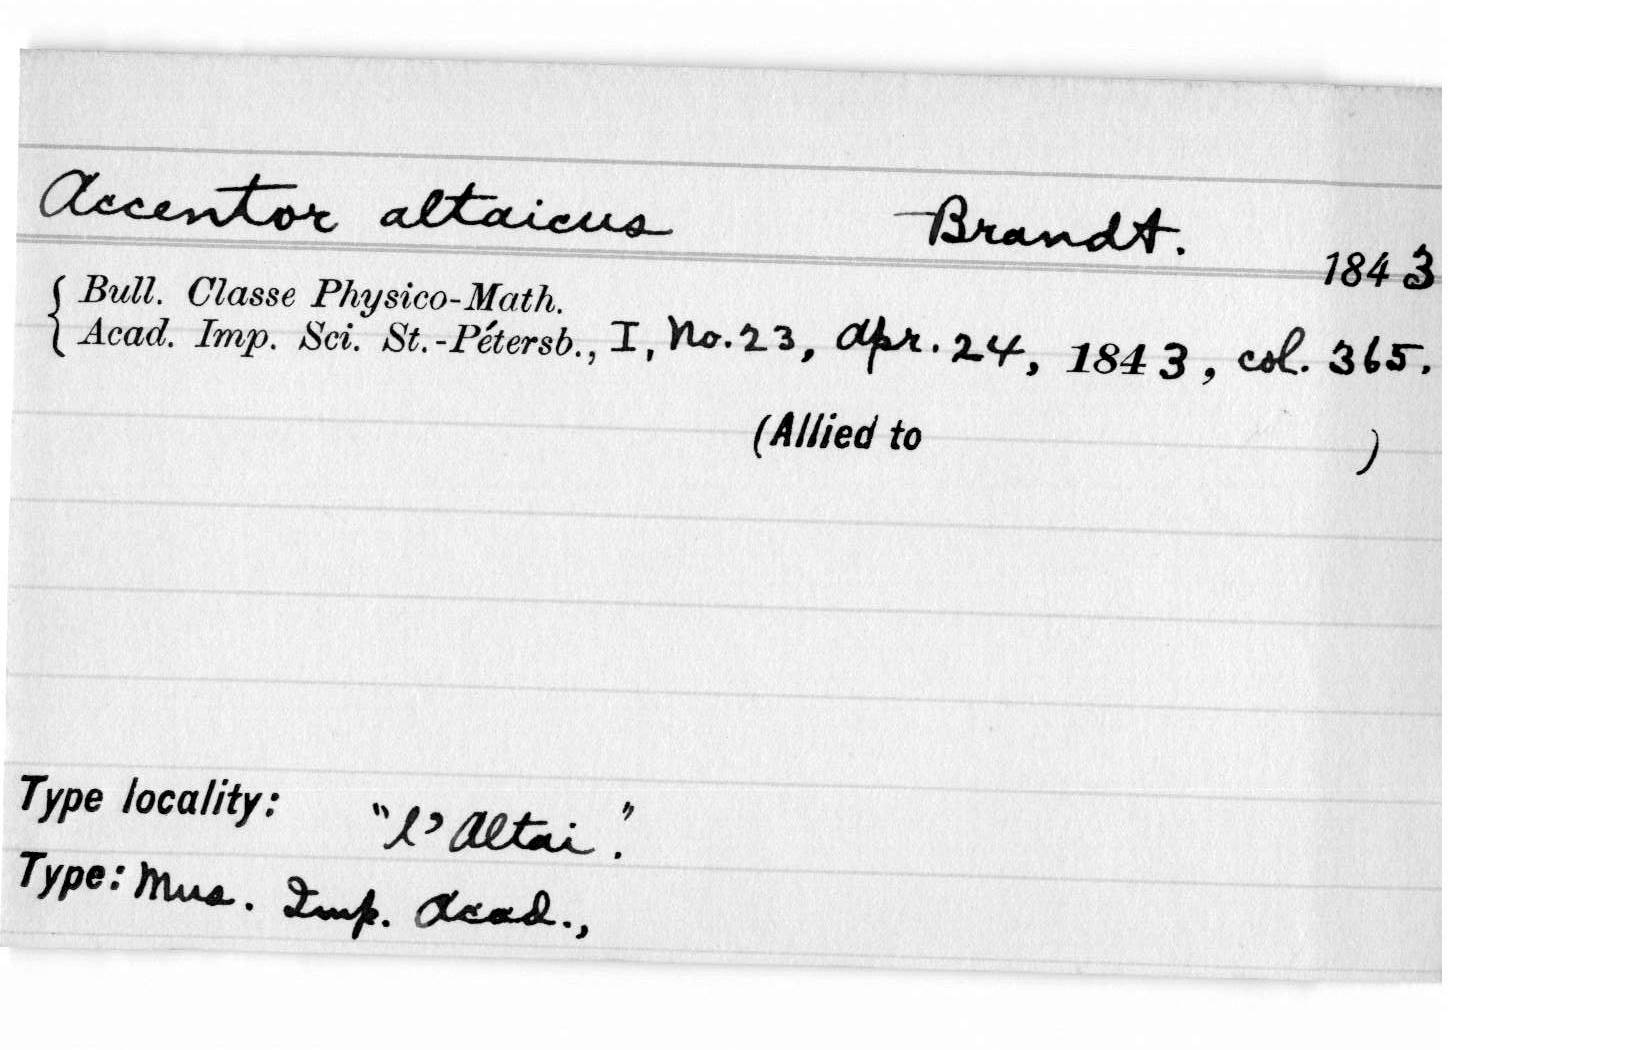 Accentor altaicus Brandt. 1843
{ Bull. Classe Physico-Math.
Acad. Imp. Sci. St.-Pétersb., I, No. 23, Apr. 24, 1843, col. 365.
(Allied to )
Type locality: "l'Altai".
Type: Mus. Imp. Acad.,